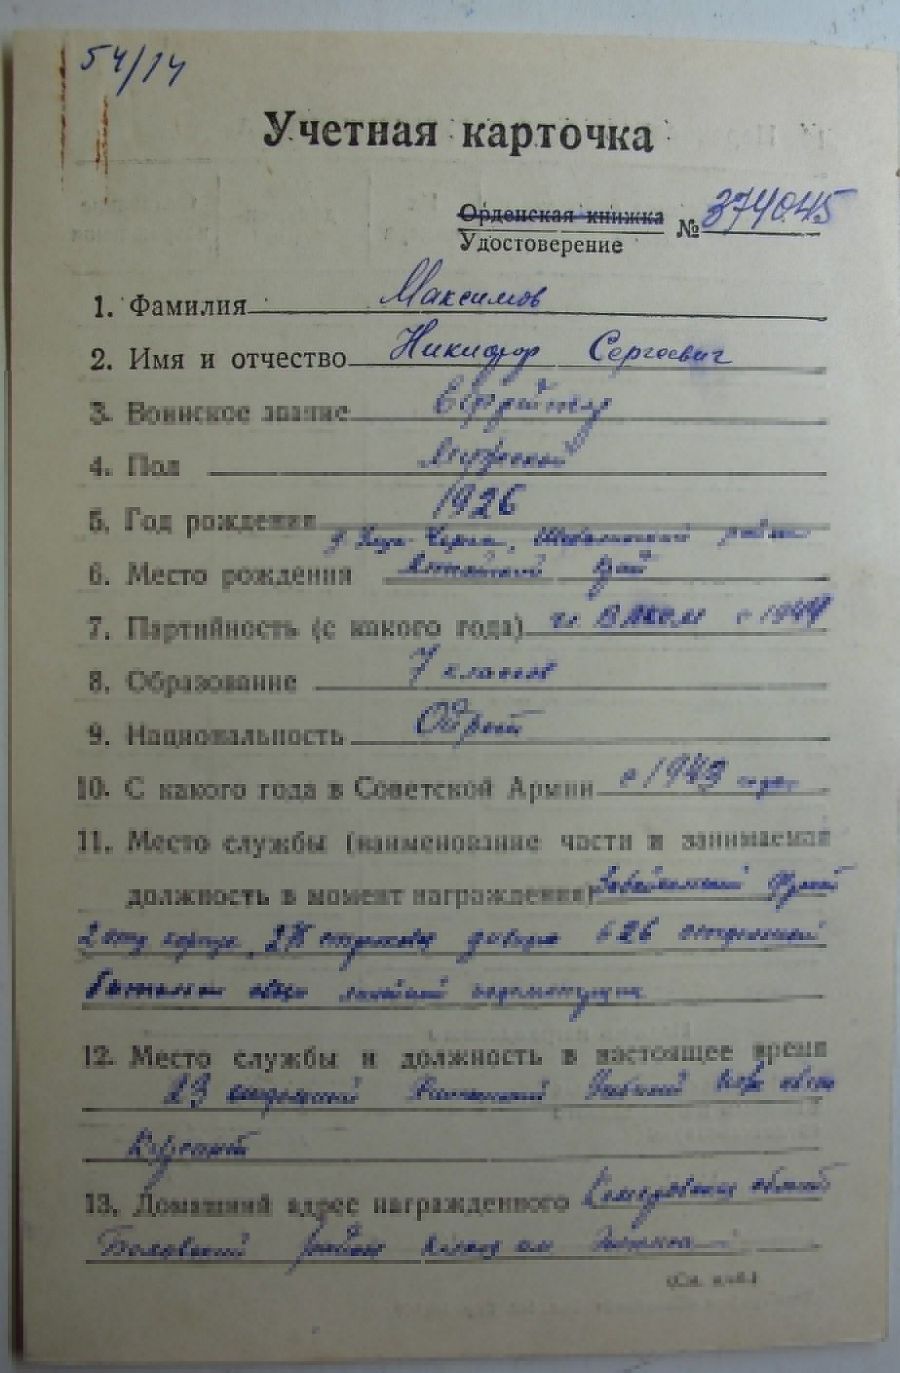 54/14
Учетная карточка
Орденская книжка
Удостоверение № 374045
1. Фамилия Максимов
2. Имя и отчество Никифор Сергеевич
3. Воинское звание Ефрейтор
4. Пол Мужской
5. Год рождения 1926
6. Место рождения Алтайский край
7. Партийность (с какого года) чл ВЛКСМ с 1944
8. Образование 7 классов
9. Национальность Ойрот
10. С какого года в Советской Армии с 1943 года
11. Место службы (наименование части и занимаемая
должность в момент награждения) Забайкальский Фронт
2 отд корпус 278 стрелковая дивизия 626 отдельный
батальон связи линейный надсмотрщик
12. Место службы и должность в настоящее время
23 отдельный Учебный полк связи
Курсант
13. Домашний адрес награжденного Кемеровская область
район
(См. н/об.)